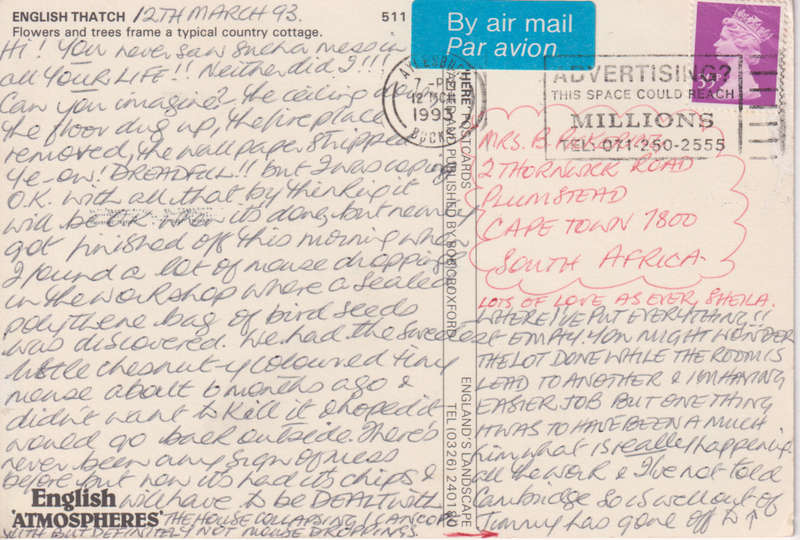 ENGLISH THATCH 12TH MARCH 93.
Flowers and trees frame a typical country cottage.
511
By air mail
Par avion
Hi! You never saw such a mess in
all YOUR LIFE!! Neither did I!!!
Can you imagine? The ceiling down,
the floor dug up, the fireplace
removed, the wallpaper stripped
Ye-ow! DREADFUL!! but I was coping
O.K. with all that by thinking it
will be O.K. when it's done, but nearly
got finished off this morning when
I found a lot of mouse droppings
in the workshop where a sealed
polythene bag of bird seeds
was discovered. We had the sweetest
little chesnut-y coloured tiny
mouse about 6 months ago &
didn't want to kill it & hoped it
would go back outside. There's
never been any sign of mess
before but now it's had its chips &
will have to be DEALT with
THE HOUSE COLLAPSING I CAN COPE
WITH BUT DEFINITELY NOT MOUSE DROPPINGS.
English
'ATMOSPHERES'
POSTCARDS
PUBLISHED BY BOB CROXFORD
ENGLAND'S LANDSCAPE
TEL (0326) 240180
AYLESBURY
7-PM
12 MCH
1993
BUCKS
ADVERTISING?
THIS SPACE COULD REACH
MILLIONS
TEL: 071-250-2555
MRS. B. PICKERING
2 THORNWICK ROAD
PLUMSTEAD
CAPE TOWN 7800
SOUTH AFRICA
LOTS OF LOVE AS EVER, SHEILA.
WHERE I'VE PUT EVERYTHING!!
IS EMPTY. YOU MIGHT WONDER
THE LOT DONE WHILE THE ROOM IS
LEAD TO ANOTHER & I'M HAVING
EASIER JOB BUT ONE THING
IT WAS TO HAVE BEEN A MUCH
him what is really happening.
all the work & I've not told
Cambridge so is well out of
Timmy has gone off to ↑